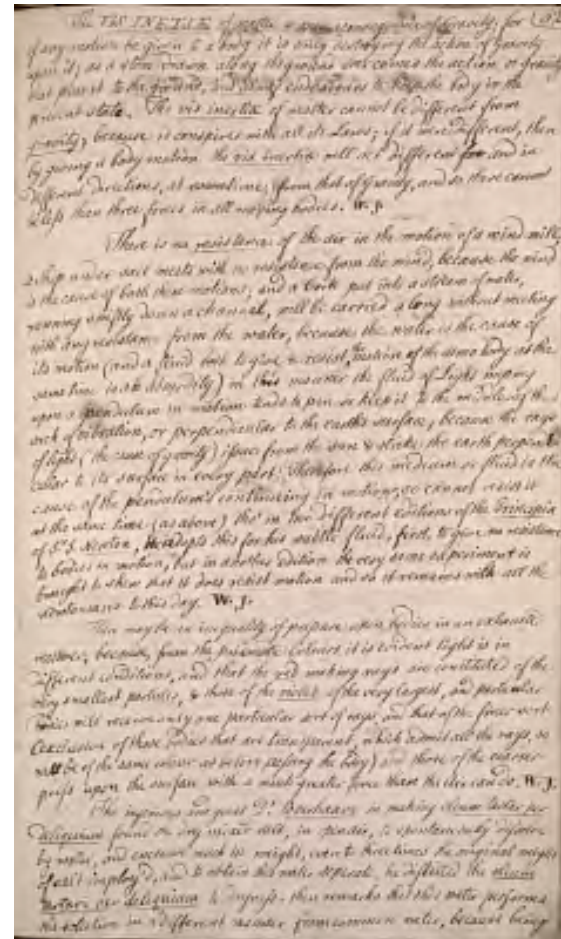 The VIS INETIÆ of matter is a consequence of Gravity; for
if any motion be given to a body it is only destroying the action of Gravity
upon it; as a stone drawn along the ground over comes the action of gravity
that places it to the ground, and endeavours to keep the body in the
present state. The vis inertiæ of matter cannot be different from
gravity, because it conspires with all its Laws; if it were different, then
by giving a body motion the vis inertiæ will act different for and in
different directions, at same time, from that of Gravity, and so there cannot
be less than three forces in all moving bodies. W. J.
There is no resistance of the air in the motion of a wind mill,
a ship under sail meets with no resistance from the wind, because the wind
is the cause of both these motions; and a Cork put into a stream of water,
running swiftly down a channel, will be carried along without meeting
with any resistance from the water, because the water is the cause of
its motion (and a fluid both to give & resist, the motion of the same body at the
same time is an absurdity) in this manner the fluid of Light moving
upon a pendulum in motion tends to pen or keep it to the middle of the
arch of vibration, or perpendicular to the earth's surface, because the rays
of light (the cause of gravity) issue from the sun & strike the earth perpendi
cular to its surface in every part. Therefore this medium or fluid is the
cause of the pendulum's continuing in motion, so cannot resist it
at the same time (as above) tho' in two different editions of the Principia
of Sr. I. Newton, he adopts this for his subtle fluid, first, to give no resistance
to bodies in motion, but in another edition the very same experiment is
brought to show that it does resist motion and so it remains with all the
Newtonians to this day. W. J.
There may be an inequality of pressure upon bodies in an exhausted
receiver, because, from the prismatic Colours it is evident Light is in
different conditions, and that the red making rays are constituted of the
very smallest particles, & those of the violet of the very largest, and particular
bodies will receive only one particular sort of rays, and that of the finer sort
(exclusion of those bodies that are transparent, which admit all the rays, so
will be of the same colour as before passing the body) and those of the coarser
press upon the surface with a much greater force than the air can do. W. J.
The ingenious and great Dr. Boerhaave in making oleum tartar per
deliquium found the dry salt, in powder, is spontaneously dissolved
by water, and encreases much in weight, even to three times the original weight
of salt imployed, and to obtain this water separate, he distilled the oleum
tartari per deliquium to dryness. then remarks that this water performs
the solution in a different manner from common water, because being